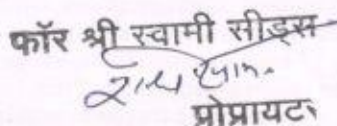 फॉर श्री स्वामी सीड्स
प्रोप्रायटर